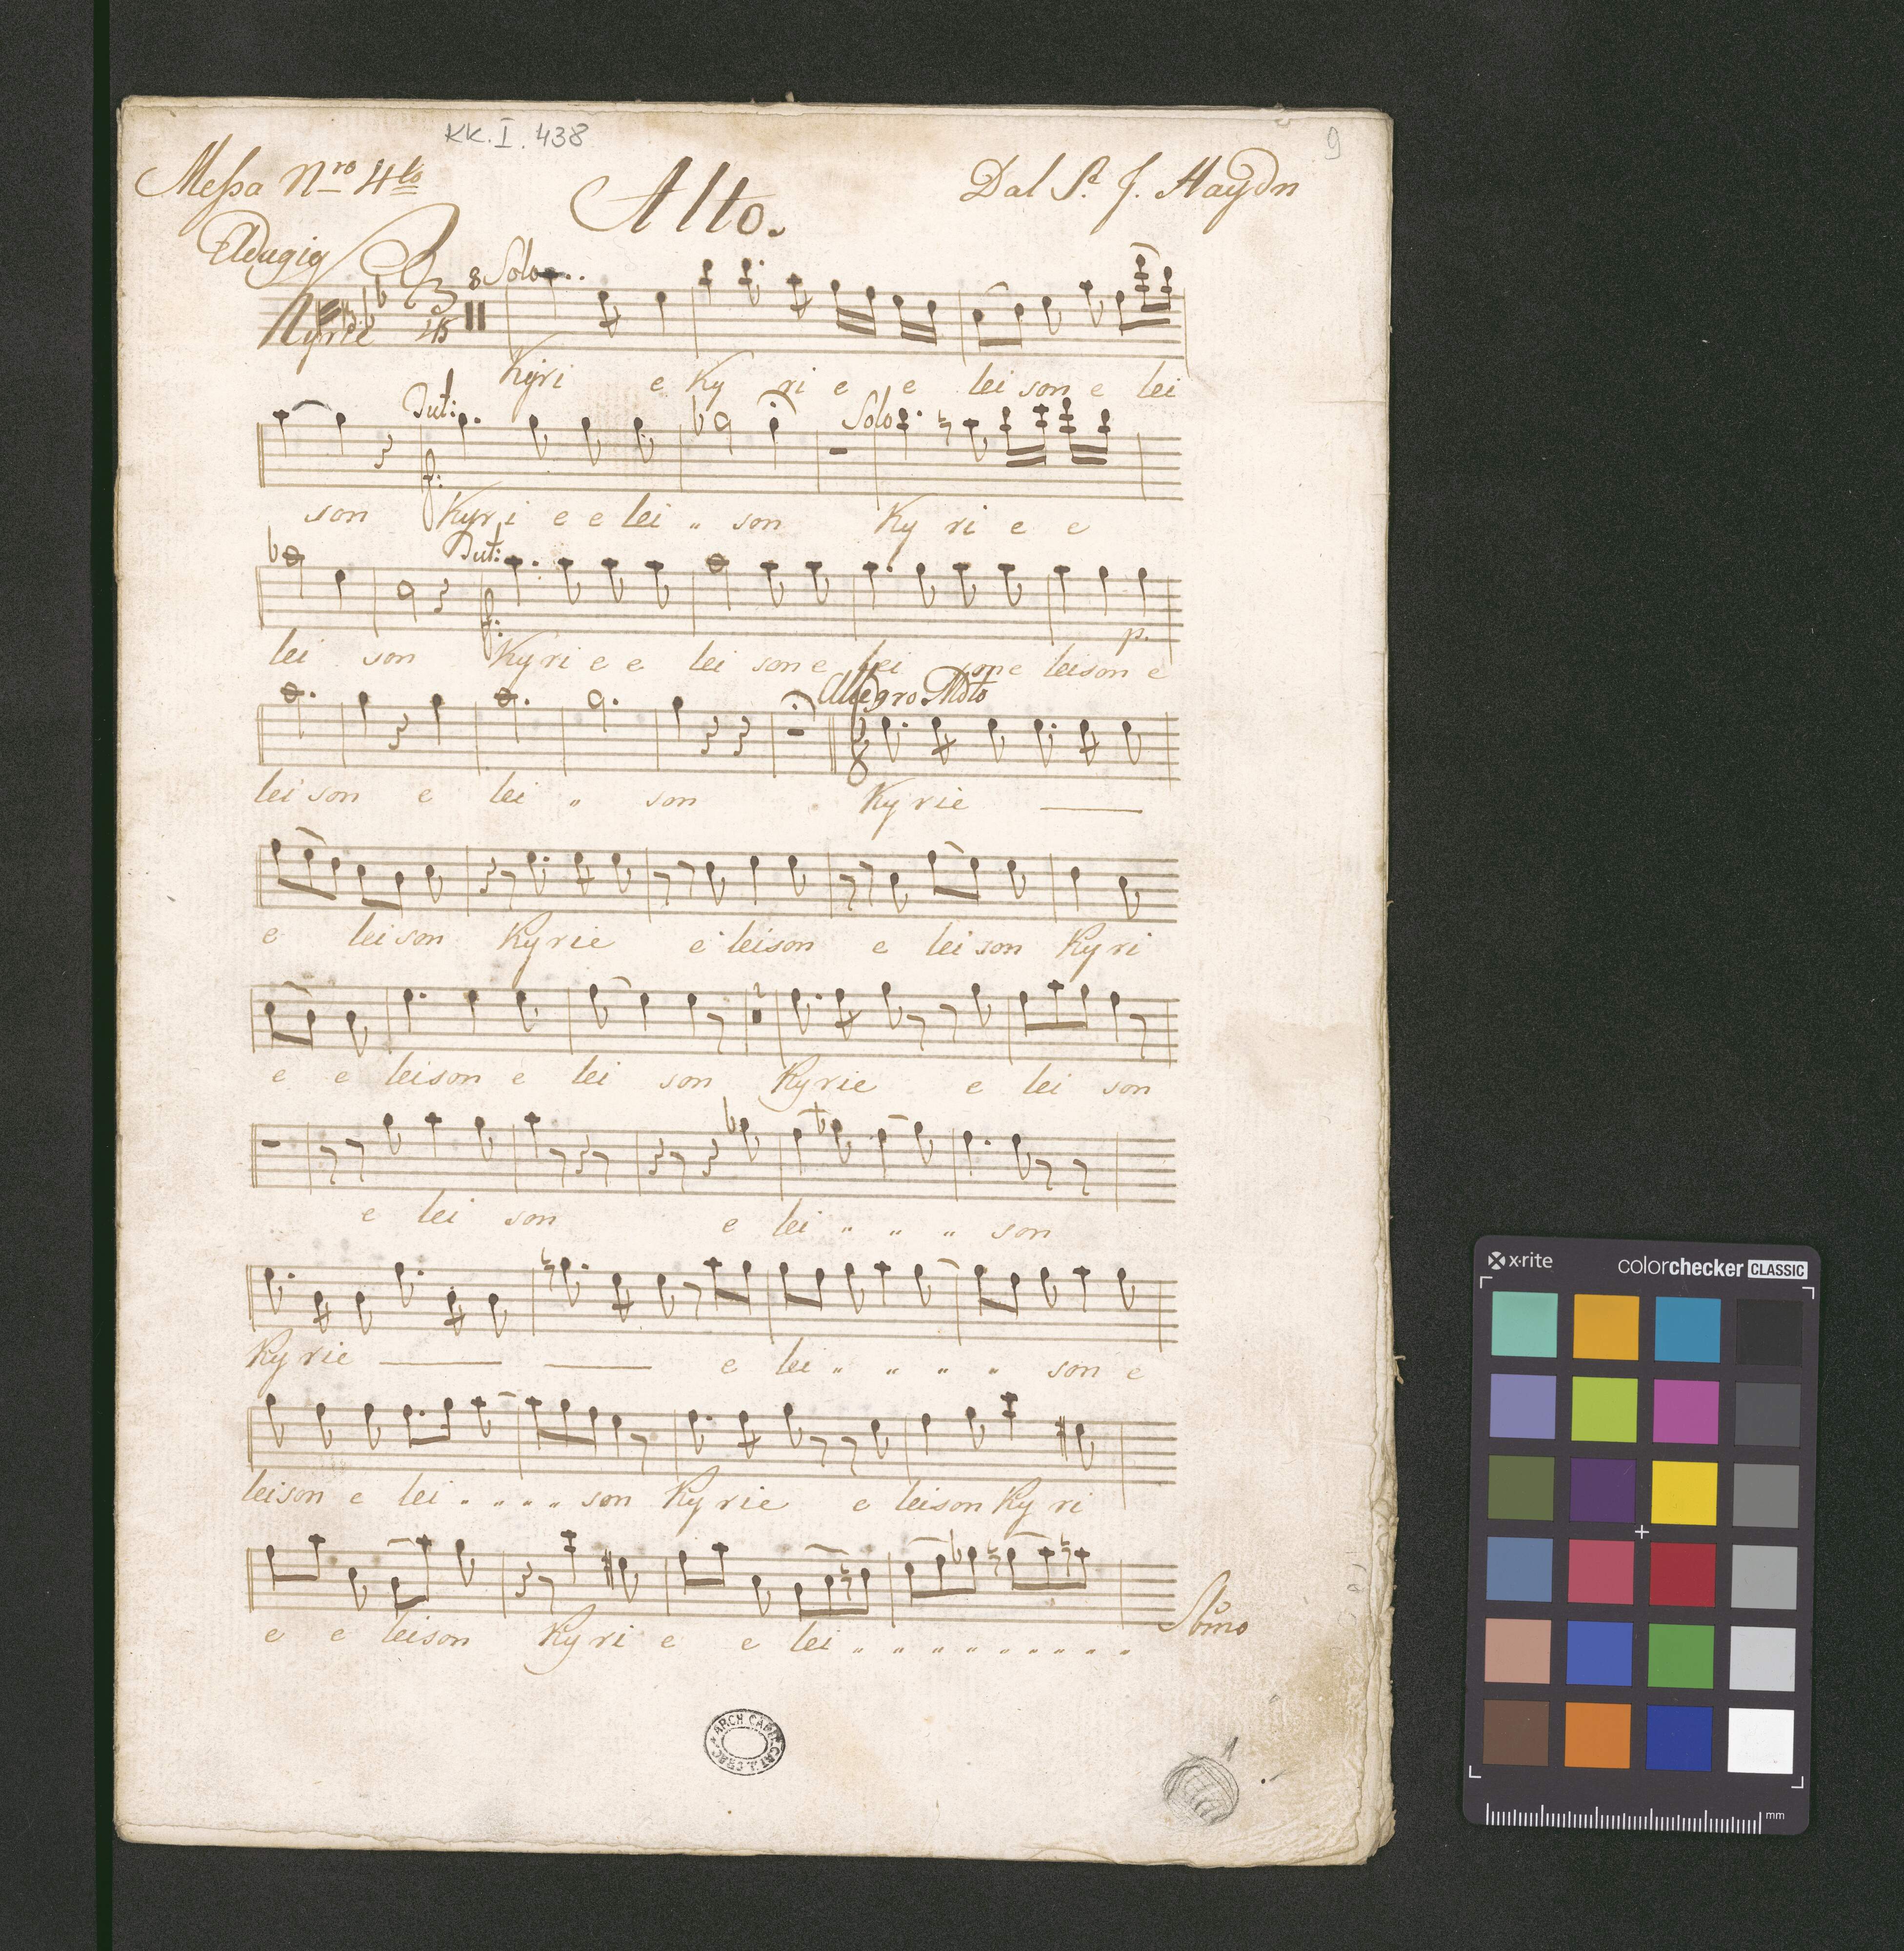 KK. I. 438
9
Messa Nro 4to
Alto.
Dal Sr. J. Haydn
Adagio
8 Solo
Kyrie 3 4
Kyri e Ky ri e e lei son e lei
Tut: Solo
f:
son Kyri e e lei „ son Ky ri e e
Tut:
f: p.
lei son Kyri e e lei son e lei son e leison e
Allegro Molto
6 8
lei son e lei „ son Kyrie
e lei son Kyrie e leison e lei son Kyri
2
e e leison e lei son Kyrie e lei son
e lei son e lei „ „ „ son
Kyrie e lei „ „ „ „ son e
leison e lei „ „ „ „ son Kyrie e leison Ky ri
e e leison Kyri e e lei „ „ „ „ „ „ „ „ „
ARCH CAPIT. CAT. CRAC.
1
x-rite
colorchecker CLASSIC
mm